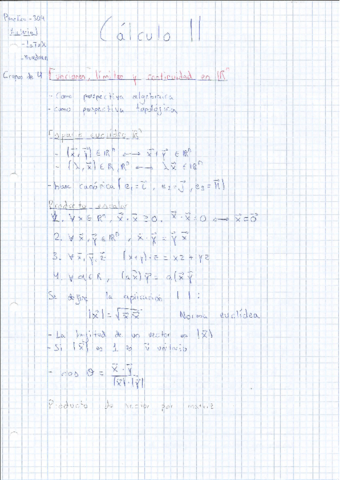 Cálculo II
Grupos de 4
Funciones, límites y continuidad en ℝⁿ
- como perspectiva algebraica
- como perspectiva topológica
Espacio euclídeo ℝⁿ
- (x⃗, y⃗) ∈ ℝⁿ ⟶ x⃗+y⃗ ∈ ℝⁿ
- (λ, x⃗) ∈ ℝ, ℝⁿ ⟶ λx⃗ ∈ ℝⁿ
- base canónica (e₁ = i⃗, e₂ = j⃗, e₃ = k⃗)
Producto escalar
1. ∀x ∈ ℝⁿ, x⃗·x⃗ ≥ 0. x⃗·x⃗ = 0 ⟷ x⃗ = 0⃗
2. ∀x⃗, y⃗ ∈ ℝⁿ, x⃗ y⃗ = y⃗ x⃗
3. ∀x⃗, y⃗, z⃗ (x+y)·z = xz + yz
4. ∀a ∈ ℝ, (a x⃗) y⃗ = a(x⃗ y⃗
Se define la aplicación | | :
|x⃗| = √x⃗x⃗ Norma euclídea
- La longitud de un vector es |x⃗|
- Si |x⃗| es 1 es v unitario
- cos θ = x⃗·y⃗ / |x⃗|·|y⃗|
Producto de vector por